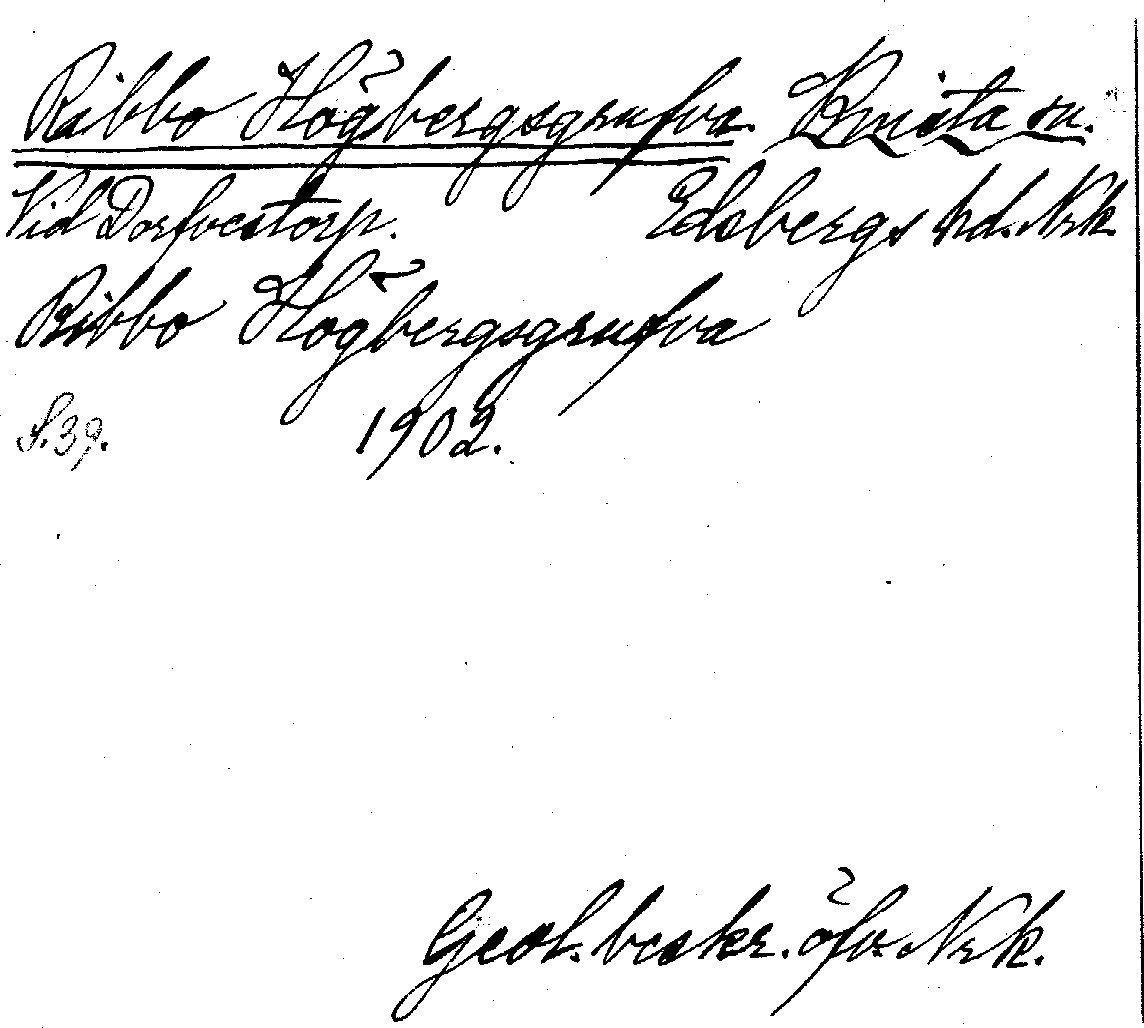 Ribbo Högbergsgrufva. Knista sn.
Vid Dorfvestorp. Edsbergs hd. Nrk.
Ribbo Högbergsgrufva
S. 39. 1902.
Geol. beskr. öfv. Nrk.